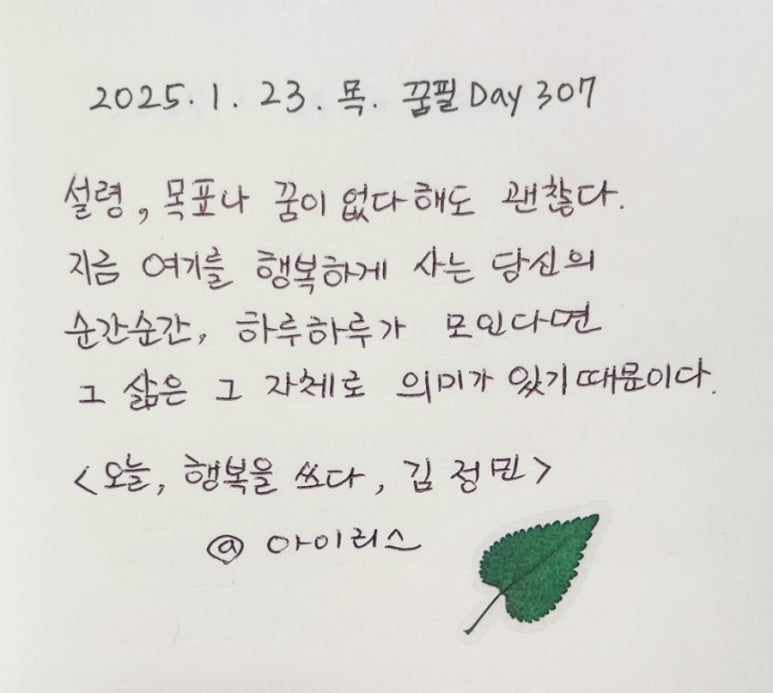 2025. 1. 23. 목. 꿈필 Day 307
설령, 목표나 꿈이 없다 해도 괜찮다.
지금 여기를 행복하게 사는 당신의
순간순간, 하루하루가 모인다면
그 삶은 그 자체로 의미가 있기 때문이다.
<오늘, 행복을 쓰다, 김정민>
@ 아이리스